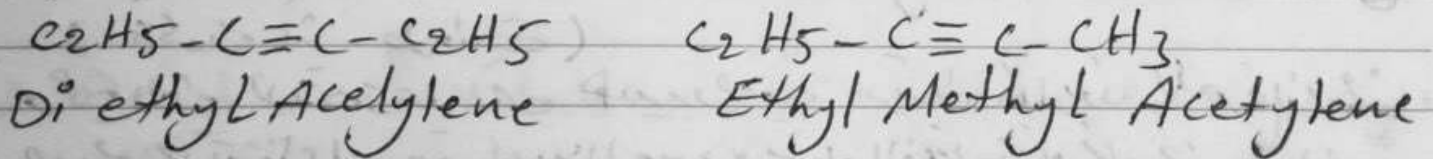 C2H5-C≡C-C2H5 C2H5-C≡C-CH3
Di ethyl Acelylene Ethyl Methyl Acetylene